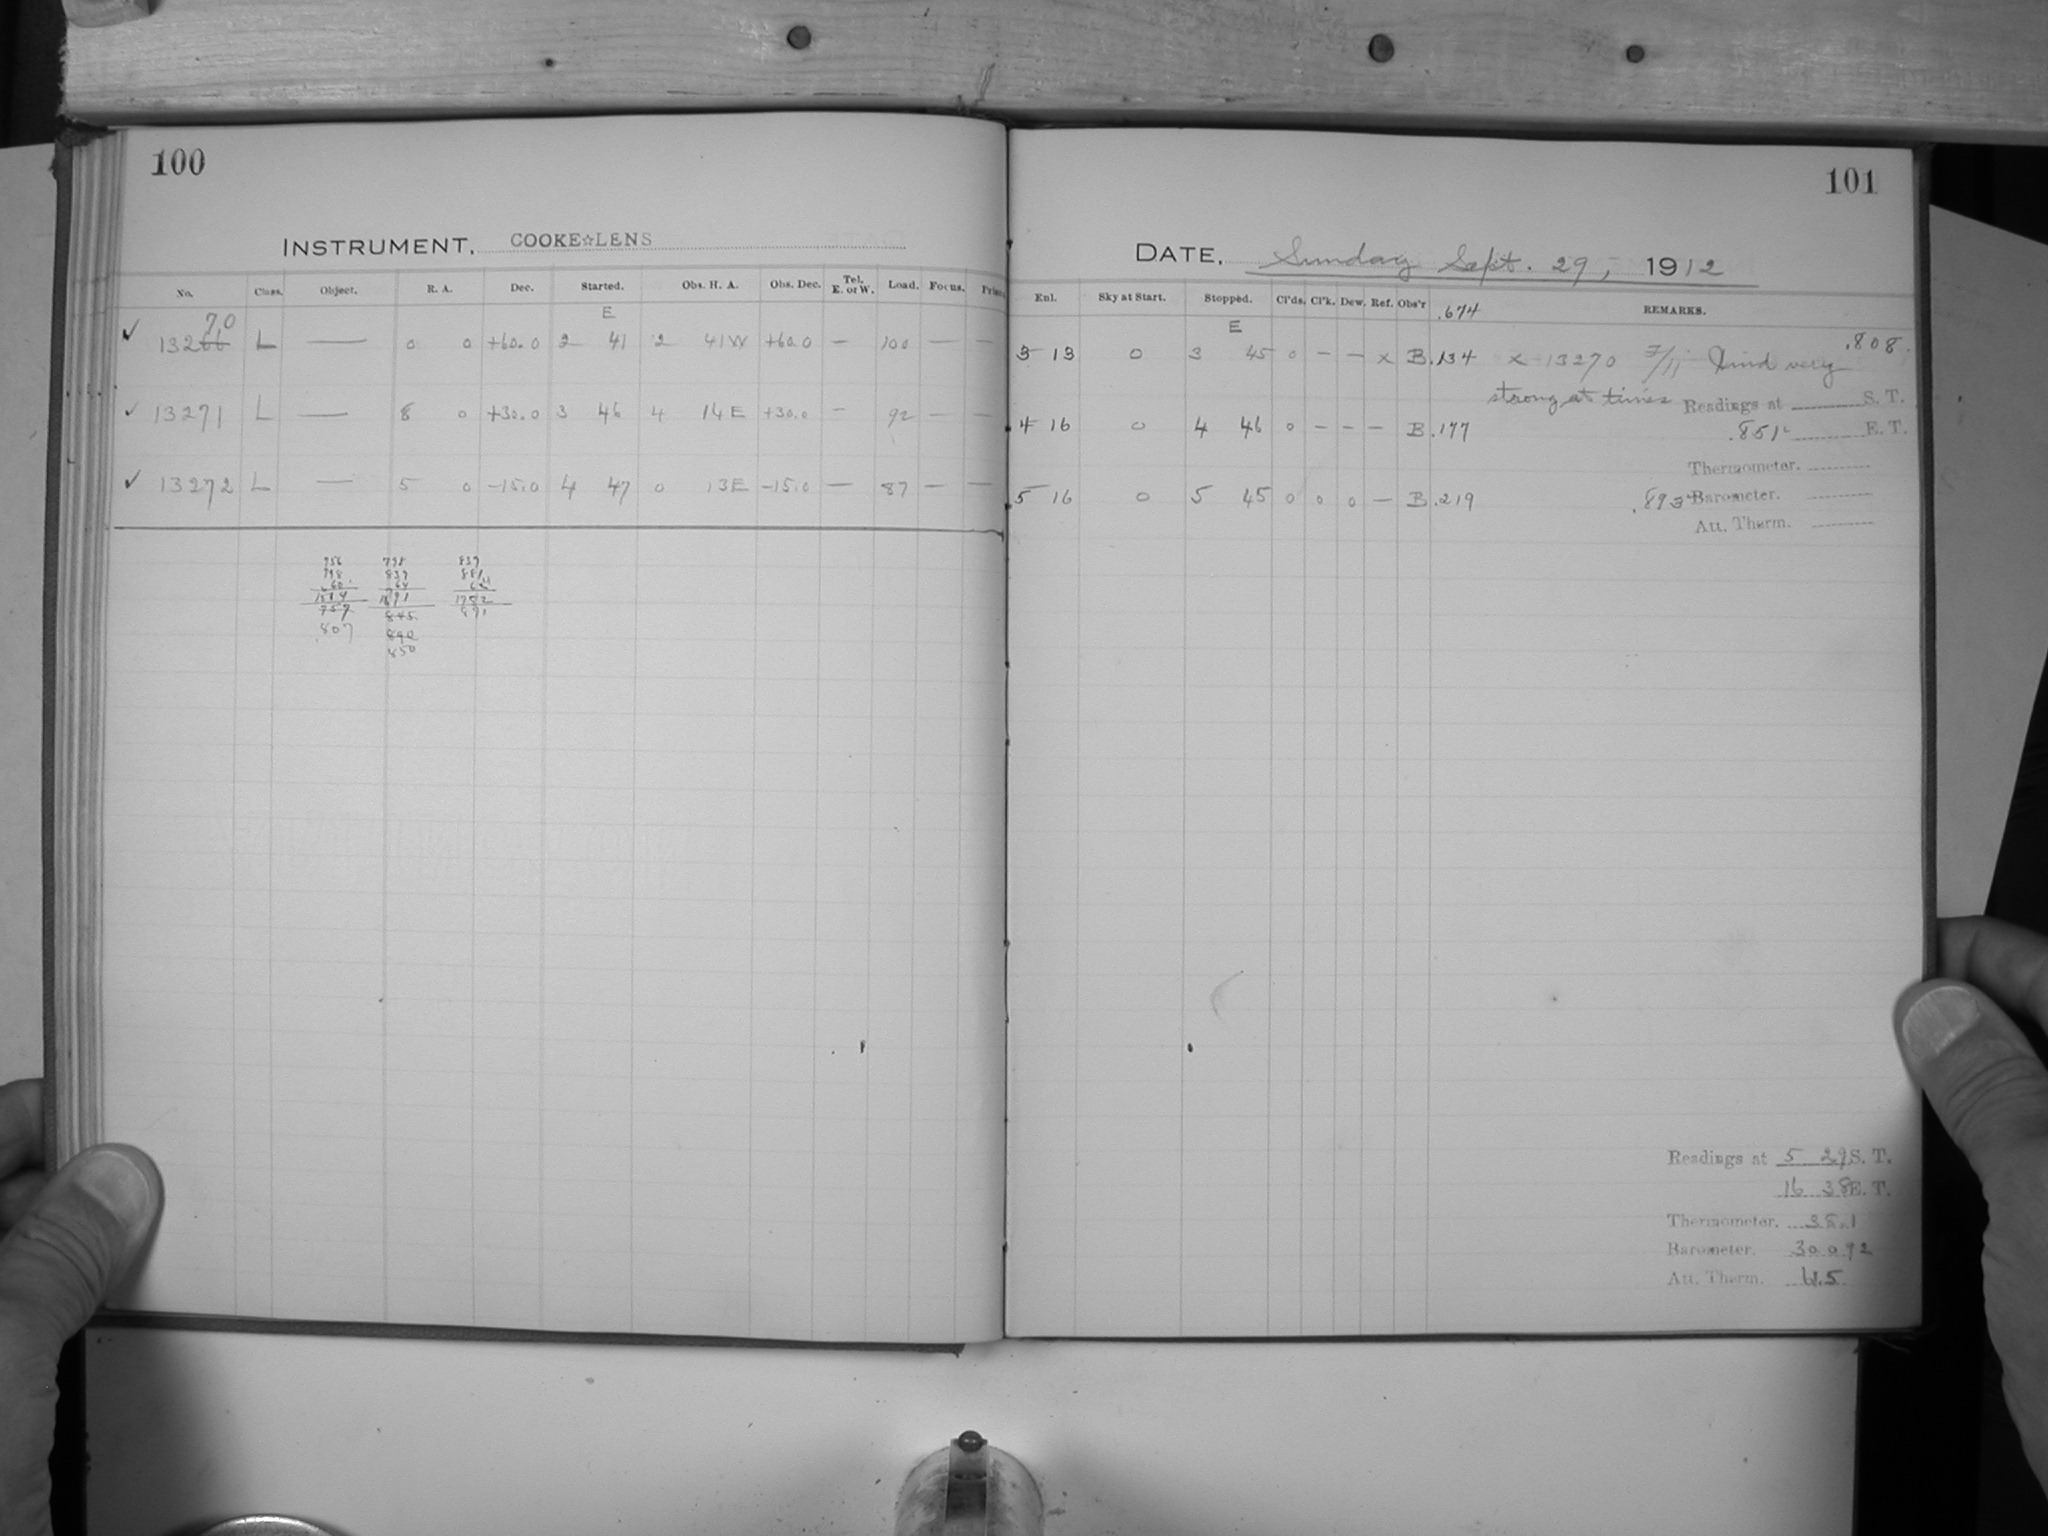 100
INSTRUMENT. COOKE☆LENS
No. Class. Object. R. A. Dec. Started. Obs. H. A. Obs. Dec. Tel. E. or W. Load. Focus.
E
70
✓ 13266 L — 0 0 +60.0 2 41 2 41 W +60.0 — 100 — —
✓ 13271 L — 8 0 +30.0 3 46 4 14 E +30.0 — 92 — —
✓ 13272 L — 5 0 -15.0 4 47 0 13 E -15.0 — 87 — —
756 798 839
798 839 881
1514 1691 1752
757 845 891
.807 840
850
101
DATE. Sunday Sept. 29, 1912
Enl. Sky at Start. Stopped. Cl'ds. Cl'k. Dew. Ref. Obs'r .674 REMARKS.
E
.808
3 13 0 3 45 0 — — x B .134 x 13270 7/11 Wind very
strong at times Readings at S. T.
4 16 0 4 46 0 — — — B .177 .851 E. T.
Thermometer.
5 16 0 5 45 0 0 0 — B .219 .893 Barometer.
Att. Therm.
Readings at 5 29 S. T.
16 38 E. T.
Thermometer. 38.1
Barometer. 30.092
Att. Therm. 61.5